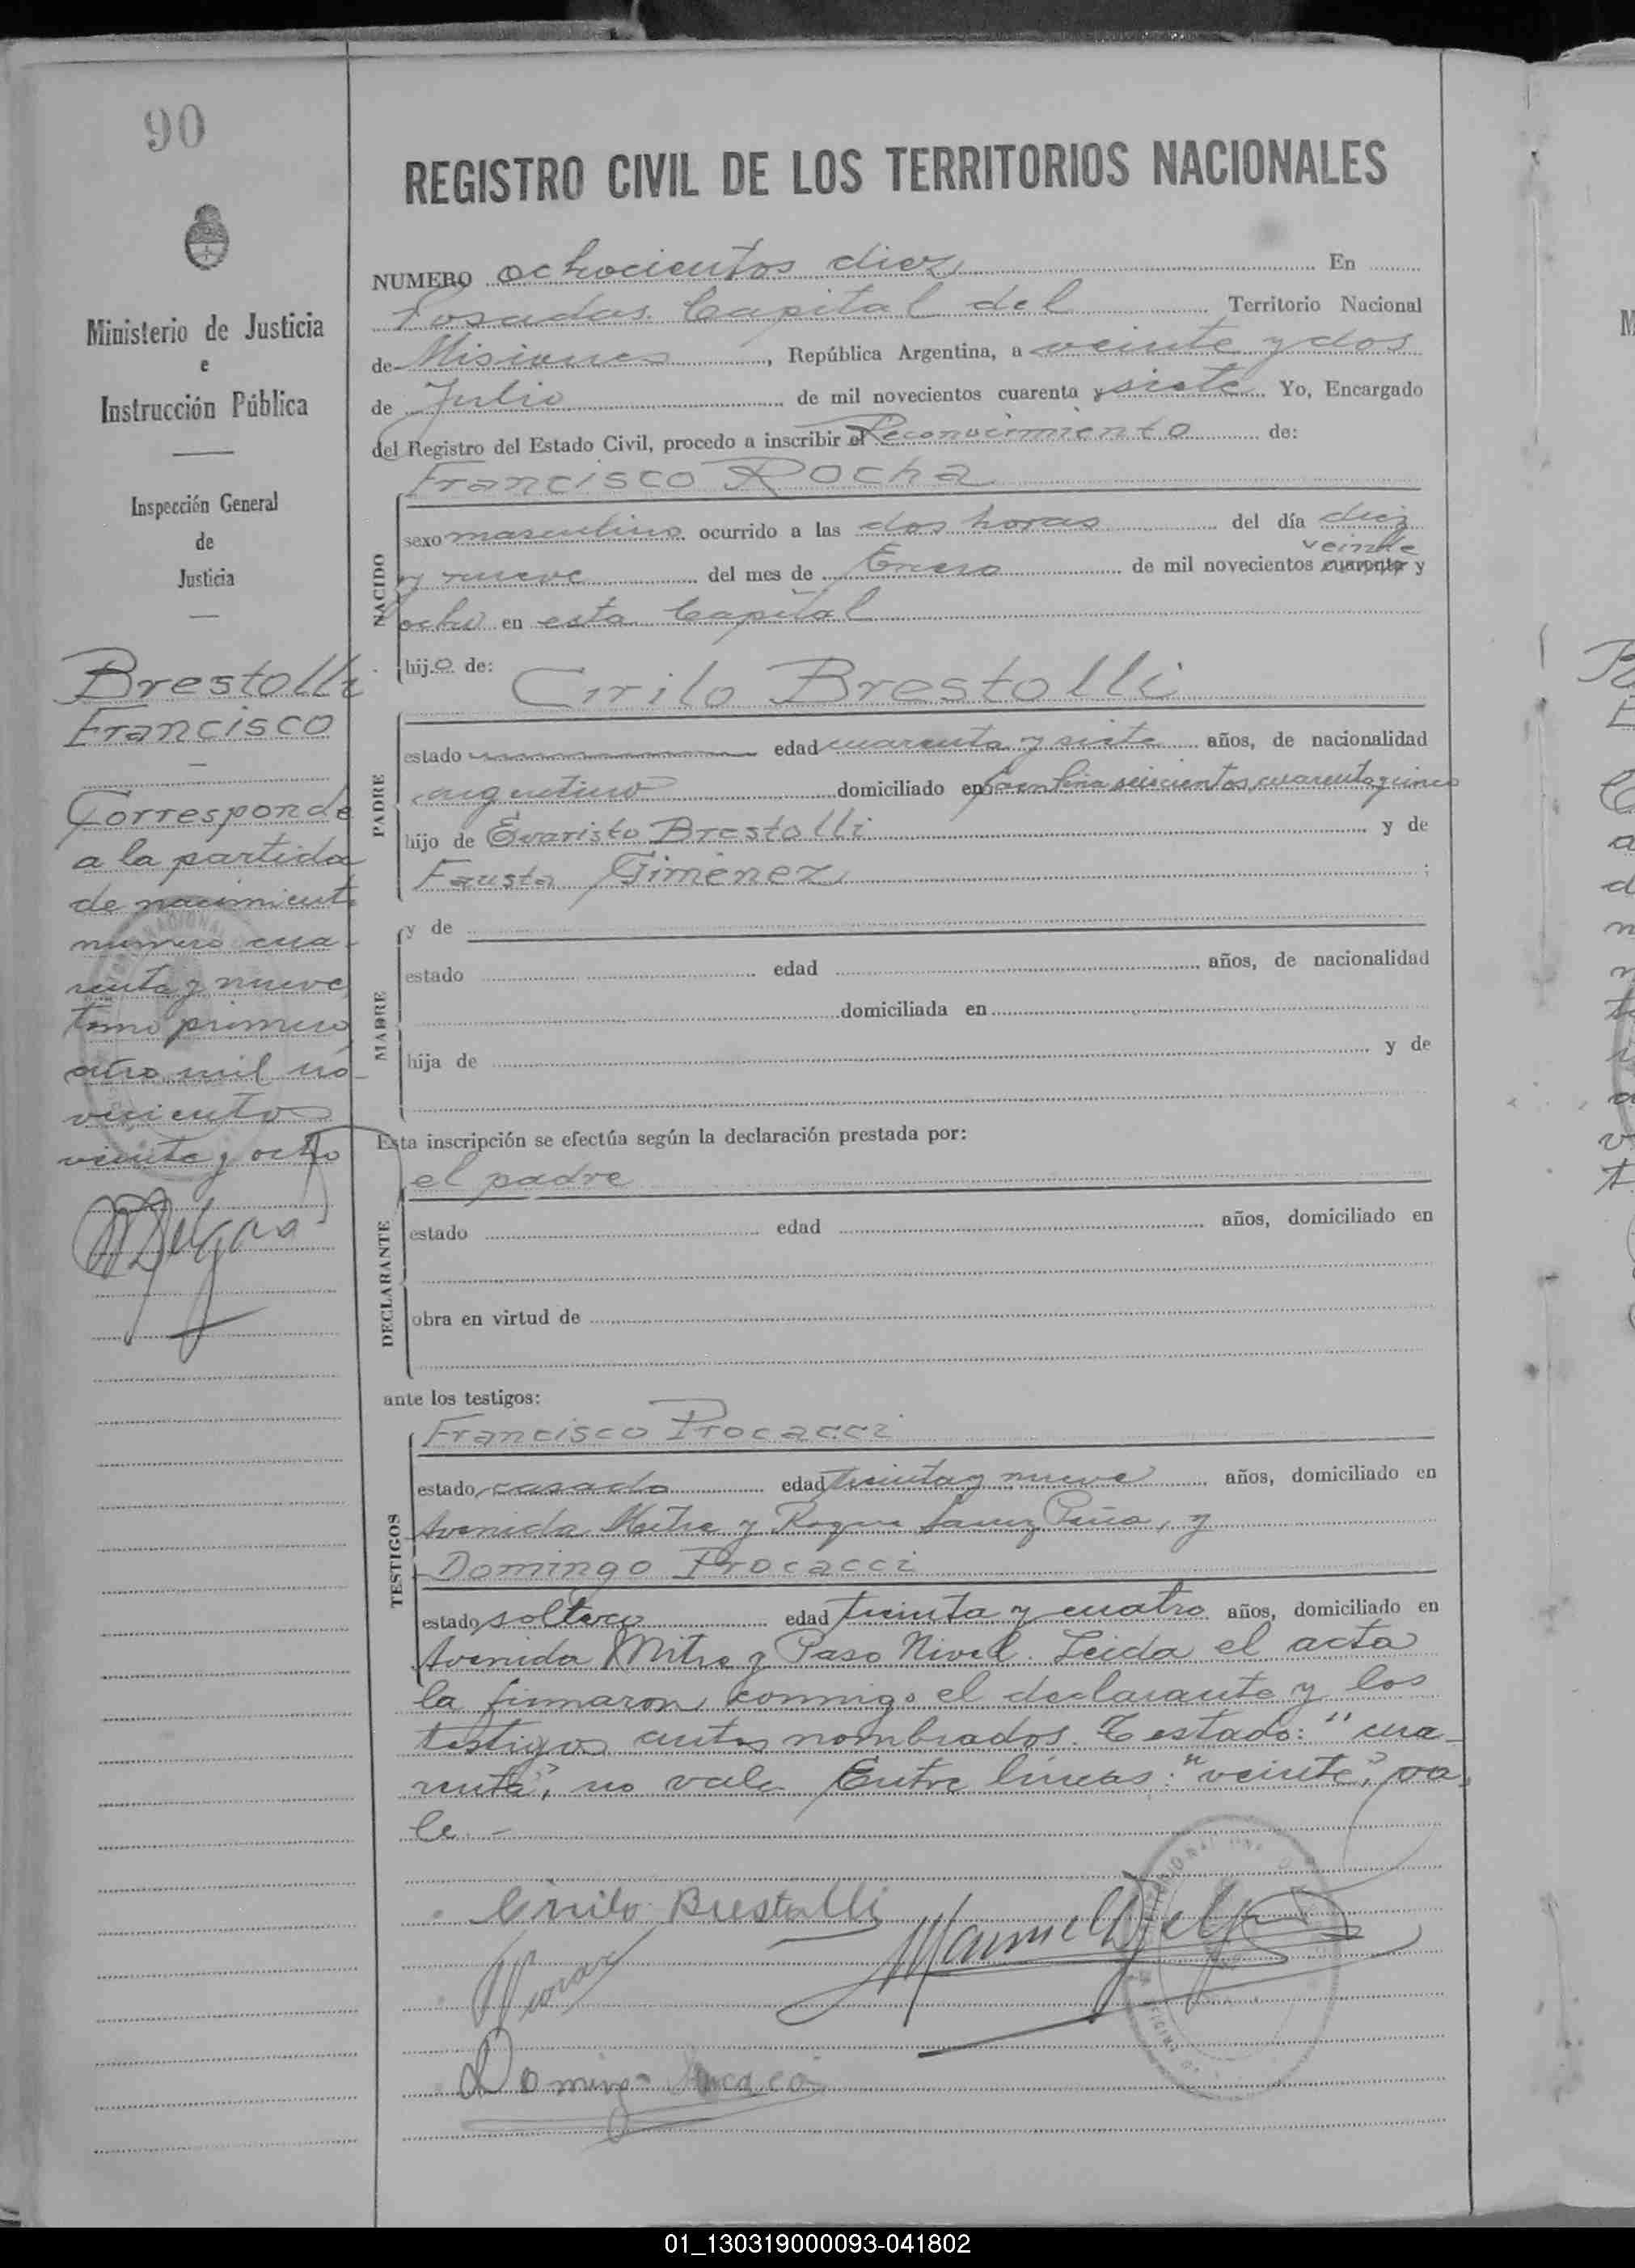 90
Ministerio de Justicia
e
Instrucción Pública
Inspección General
de
Justicia
Brestolli
Francisco
Corresponde
a la partida
de nacimiento
numero cua-
renta y nueve
tomo primero
año mil no-
vecientos
veinte y ocho
REGISTRO CIVIL DE LOS TERRITORIOS NACIONALES
NUMERO ochocientos diez En
Posadas Capital del Territorio Nacional
de Misiones, República Argentina, a veinte y dos
de Julio de mil novecientos cuarenta y siete Yo, Encargado
del Registro del Estado Civil, procedo a inscribir el Reconocimiento de:
Francisco Rocha
NACIDO
sexo masculino ocurrido a las dos horas del día diez
veinte
y nueve del mes de Enero de mil novecientos cuarenta y
ocho en esta Capital
hijo de: Cirilo Brestolli
PADRE
estado edad cuarenta y siete años, de nacionalidad
argentino domiciliado en seiscientos cuarenta y cinco
hijo de Evaristo Brestolli y de
Fausta Gimenez
MADRE
y de
estado edad años, de nacionalidad
domiciliada en
hija de y de
Esta inscripción se efectúa según la declaración prestada por:
el padre
DECLARANTE
estado edad años, domiciliado en
obra en virtud de
ante los testigos:
Francisco Procacci
TESTIGOS
estado casado edad treinta y nueve años, domiciliado en
Avenida Mitre y Roque Saenz Peña, y
Domingo Procacci
estado soltero edad treinta y cuatro años, domiciliado en
Avenida Mitre y Paso Nivel. Leida el acta
la firmaron conmigo el declarante y los
testigos antes nombrados. Testado: "cua-
renta", no vale. Entre lineas: "veinte", va-
le.-
Cirilo Brestolli
Domingo Procacci
01_130319000093-041802